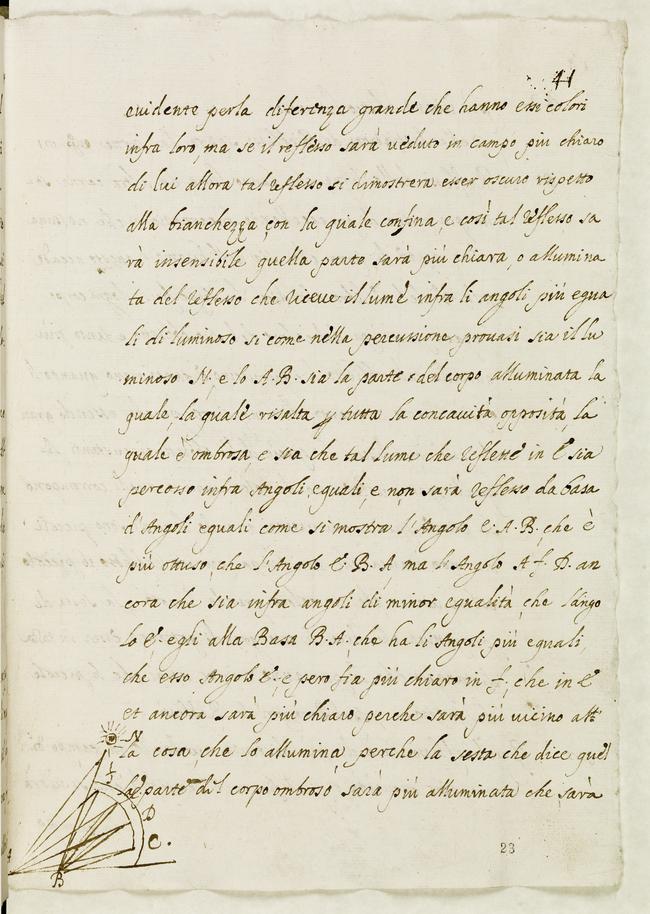 41
euidente per la diferenza grande che hanno essi colori
infra loro, ma se il reflesso sarà ueduto in campo piu chiaro
di lui allora tal reflesso si dimostrera esser oscuro rispetto
alla bianchezza con la quale confina, e così tal reflesso sa
rà insensibile quella parte sarà più chiara, o allumina
ta del reflesso che riceue il lume infra li angoli più egua
li di luminoso si come nella percussione prouasi sia il lu
minoso N, e lo A.B. sia la parte del corpo alluminata la
quale, la quale risalta tutta la concauità opposità, la
quale è ombrosa, e sia che tal lume che reflette in E sia
percosso infra Angoli equali, e non sarà reflesso da basa
d'Angoli equali come si mostra l'Angolo E.A.B. che è
più ottuso, che l'Angolo E.B.A, ma l'Angolo A f. D. an
cora che sia infra angoli di minor equalità, che l'ango
lo E, egli alla Basa B.A, che ha li Angoli più equali,
che esso Angolo E, e pero fia più chiaro in f, che in E
et ancora sarà più chiaro perche sarà più uicino al
la cosa, che lo allumina perche la sesta che dice quel
la parte del corpo ombroso sarà più alluminata che sarà
N
f
D
C.
B
23